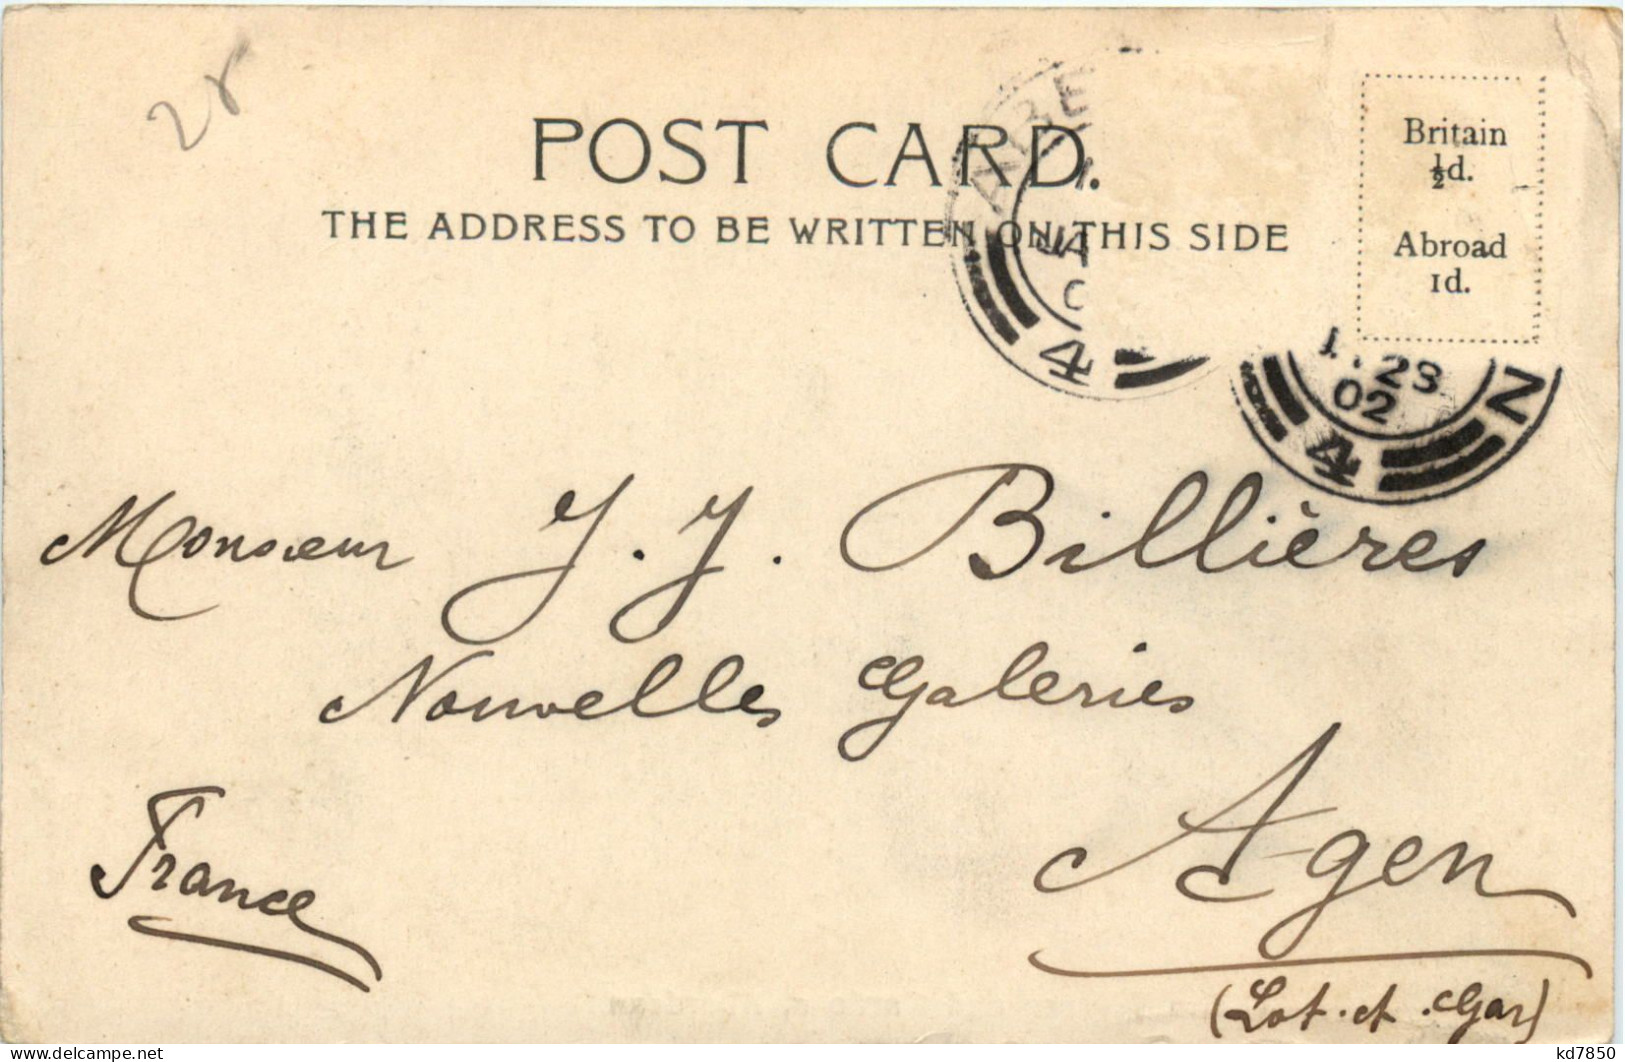 28
POST CARD.
THE ADDRESS TO BE WRITTEN ON THIS SIDE
Britain
½d.
Abroad
1d.
JA
4
N
28
02
4
Monsieur J. J. Billières
Nouvelles Galeries
Agen
(Lot-et-Gar)
France
www.delcampe.net
kd7850